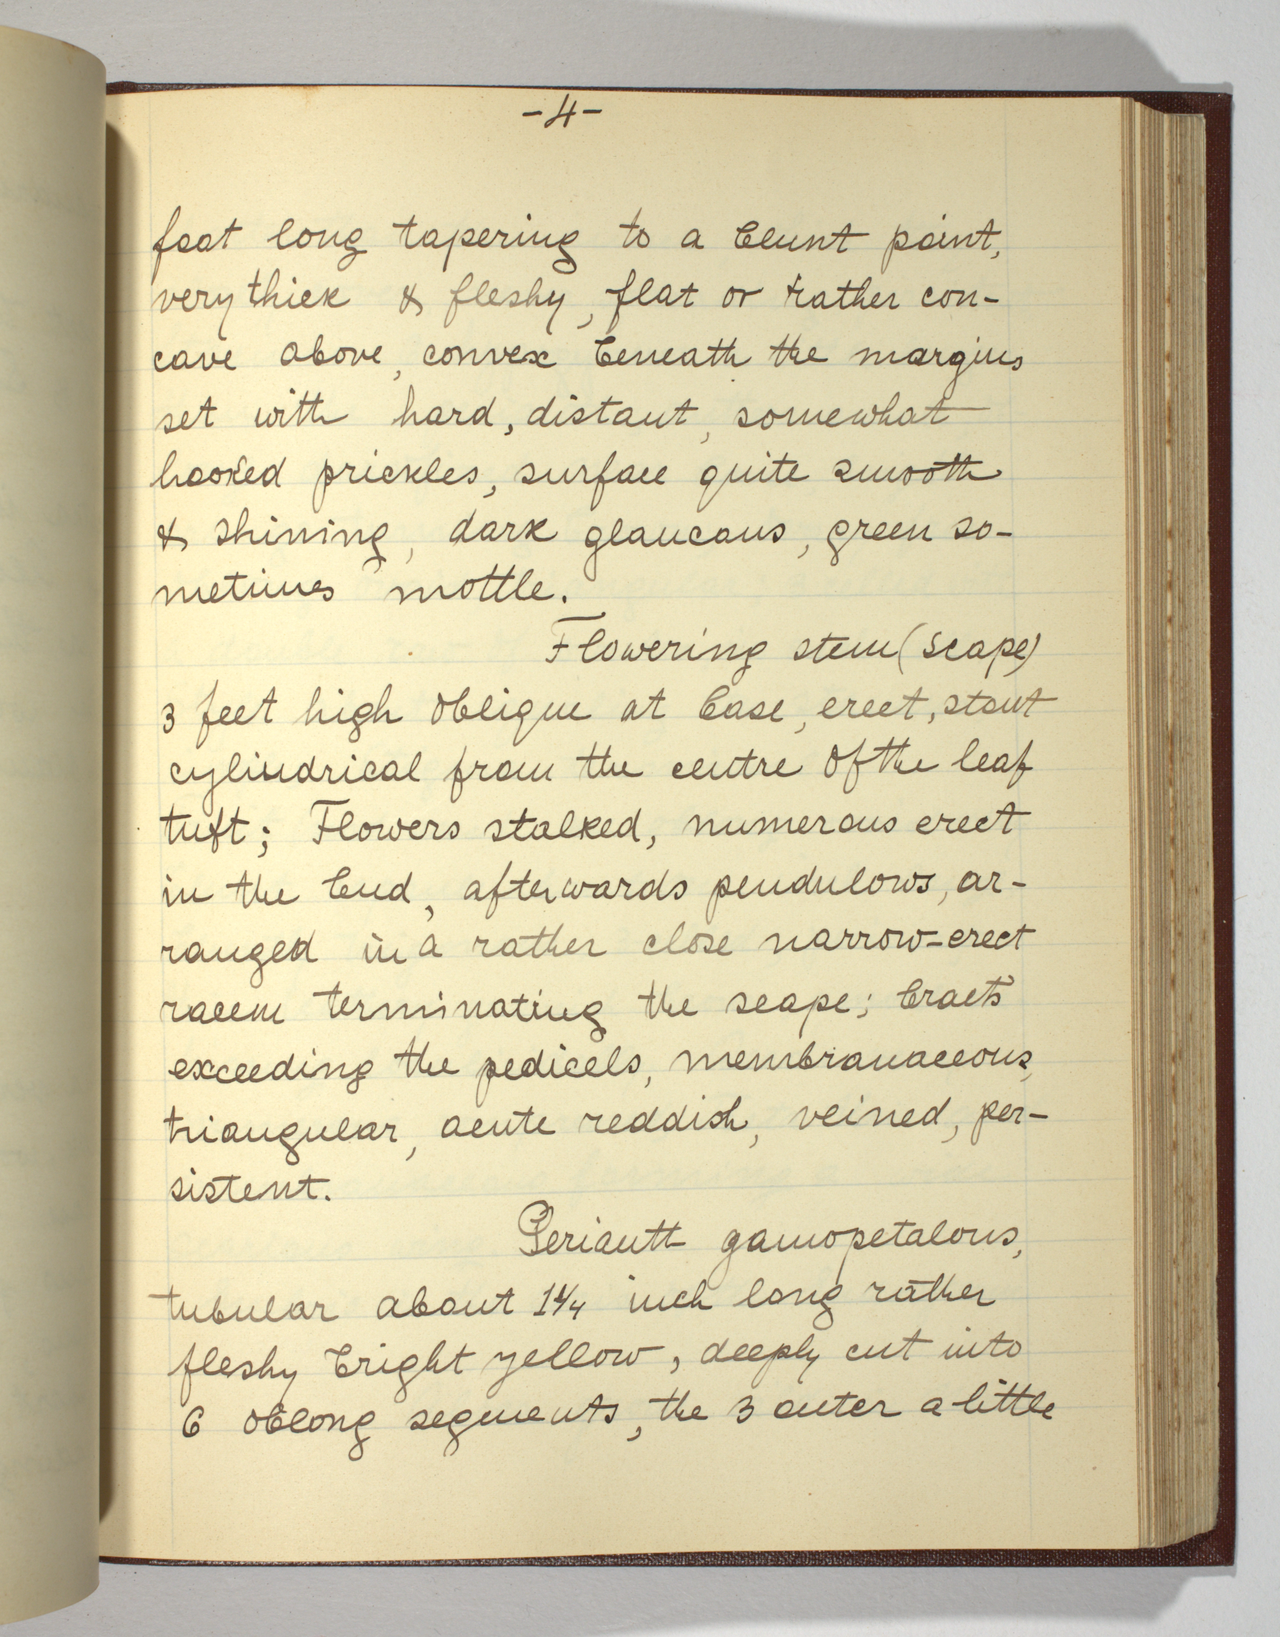 -4-
foot long tapering to a blunt point,
very thick & fleshy, flat or rather con-
cave above, convex beneath the margins
set with hard, distant, somewhat
hooked prickles, surface quite smooth
& shining, dark glaucous, green so-
metimes mottle.
Flowering stem (scape)
3 feet high oblique at base, erect, stout
cylindrical from the centre of the leaf
tuft; Flowers stalked, numerous erect
in the bud, afterwards pendulows, ar-
ranged in a rather close narrow-erect
racem terminating the scape; bracts
exceeding the pedicels, membranaceous,
triangular, acute reddish, veined, per-
sistent.
Periantt gamopetalous,
tubular about 1 1/4 inch long rather
fleshy bright yellow, deeply cut into
6 oblong segments, the 3 outer a little